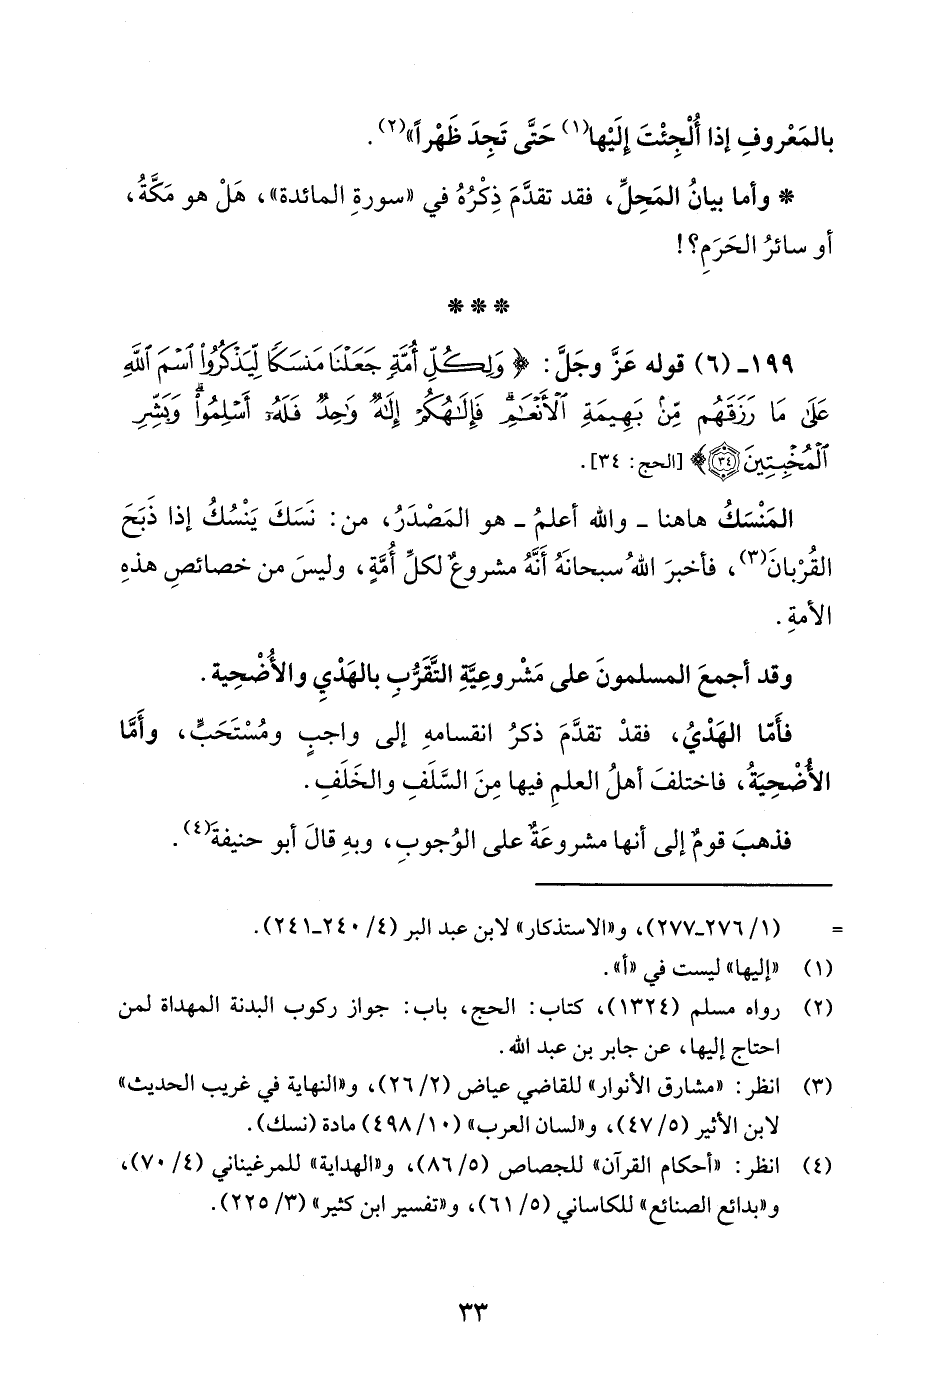 بالمَعْروفِ إذا أُلْجِئْتَ إِلَيْها(١) حَتَّى تَجِدَ ظَهْراً»(٢).
* وأما بيانُ المَحِلِّ، فقد تقدَّمَ ذِكْرُهُ في «سورةِ المائدة»، هَلْ هو مَكَّةُ،
أو سائرُ الحَرَمِ؟!
* * *
١٩٩ـ (٦) قوله عَزَّ وجَلَّ: ﴿وَلِكُلِّ أُمَّةٍ جَعَلْنَا مَنسَكًا لِّيَذْكُرُوا۟ ٱسْمَ ٱللَّهِ
عَلَىٰ مَا رَزَقَهُم مِّنۢ بَهِيمَةِ ٱلْأَنْعَـٰمِ ۗ فَإِلَـٰهُكُمْ إِلَـٰهٌ وَٰحِدٌ فَلَهُۥٓ أَسْلِمُوا۟ ۗ وَبَشِّرِ
ٱلْمُخْبِتِينَ ٣٤﴾ [الحج: ٣٤].
المَنْسَكُ هاهنا ـ والله أعلمُ ـ هو المَصْدَرُ، من: نَسَكَ يَنْسُكُ إذا ذَبَحَ
القُرْبانَ(٣)، فأخبرَ اللهُ سبحانَهُ أنَّهُ مشروعٌ لكلِّ أُمَّةٍ، وليسَ من خصائصِ هذهِ
الأمةِ.
وقد أجمعَ المسلمونَ على مَشْروعِيَّةِ التَّقَرُّبِ بالهَدْيِ والأُضْحِية.
فأَمّا الهَدْيُ، فقدْ تقدَّمَ ذكرُ انقسامهِ إلى واجبٍ ومُسْتَحَبٍّ، وأَمَّا
الأُضْحِيَةُ، فاختلفَ أهلُ العلمِ فيها مِنَ السَّلَفِ والخَلَفِ.
فذهبَ قومٌ إلى أنها مشروعَةٌ على الوُجوبِ، وبهِ قالَ أبو حنيفةَ(٤).
= (١/ ٢٧٦ـ٢٧٧)، و«الاستذكار» لابن عبد البر (٤/ ٢٤٠ـ٢٤١).
(١) «إليها» ليست في «أ».
(٢) رواه مسلم (١٣٢٤)، كتاب: الحج، باب: جواز ركوب البدنة المهداة لمن
احتاج إليها، عن جابر بن عبد الله.
(٣) انظر: «مشارق الأنوار» للقاضي عياض (٢/ ٢٦)، و«النهاية في غريب الحديث»
لابن الأثير (٥/ ٤٧)، و«لسان العرب» (١٠/ ٤٩٨) مادة (نسك).
(٤) انظر: «أحكام القرآن» للجصاص (٥/ ٨٦)، و«الهداية» للمرغيناني (٤/ ٧٠)،
و«بدائع الصنائع» للكاساني (٥/ ٦١)، و«تفسير ابن كثير» (٣/ ٢٢٥).
٣٣